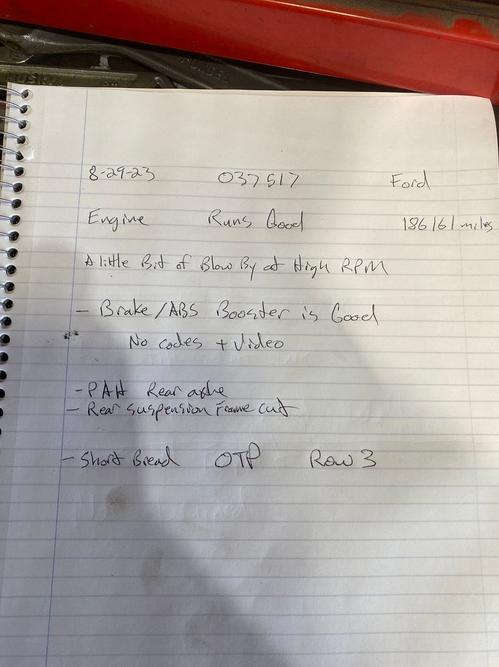 8-29-23 037517 Ford
Engine Runs Good 186161 miles
A little Bit of Blow By at High RPM
- Brake/ABS Booster is Good
No codes + Video
- PAH Rear axle
- Rear suspension Frame cut
- Short Bread OTP Row 3